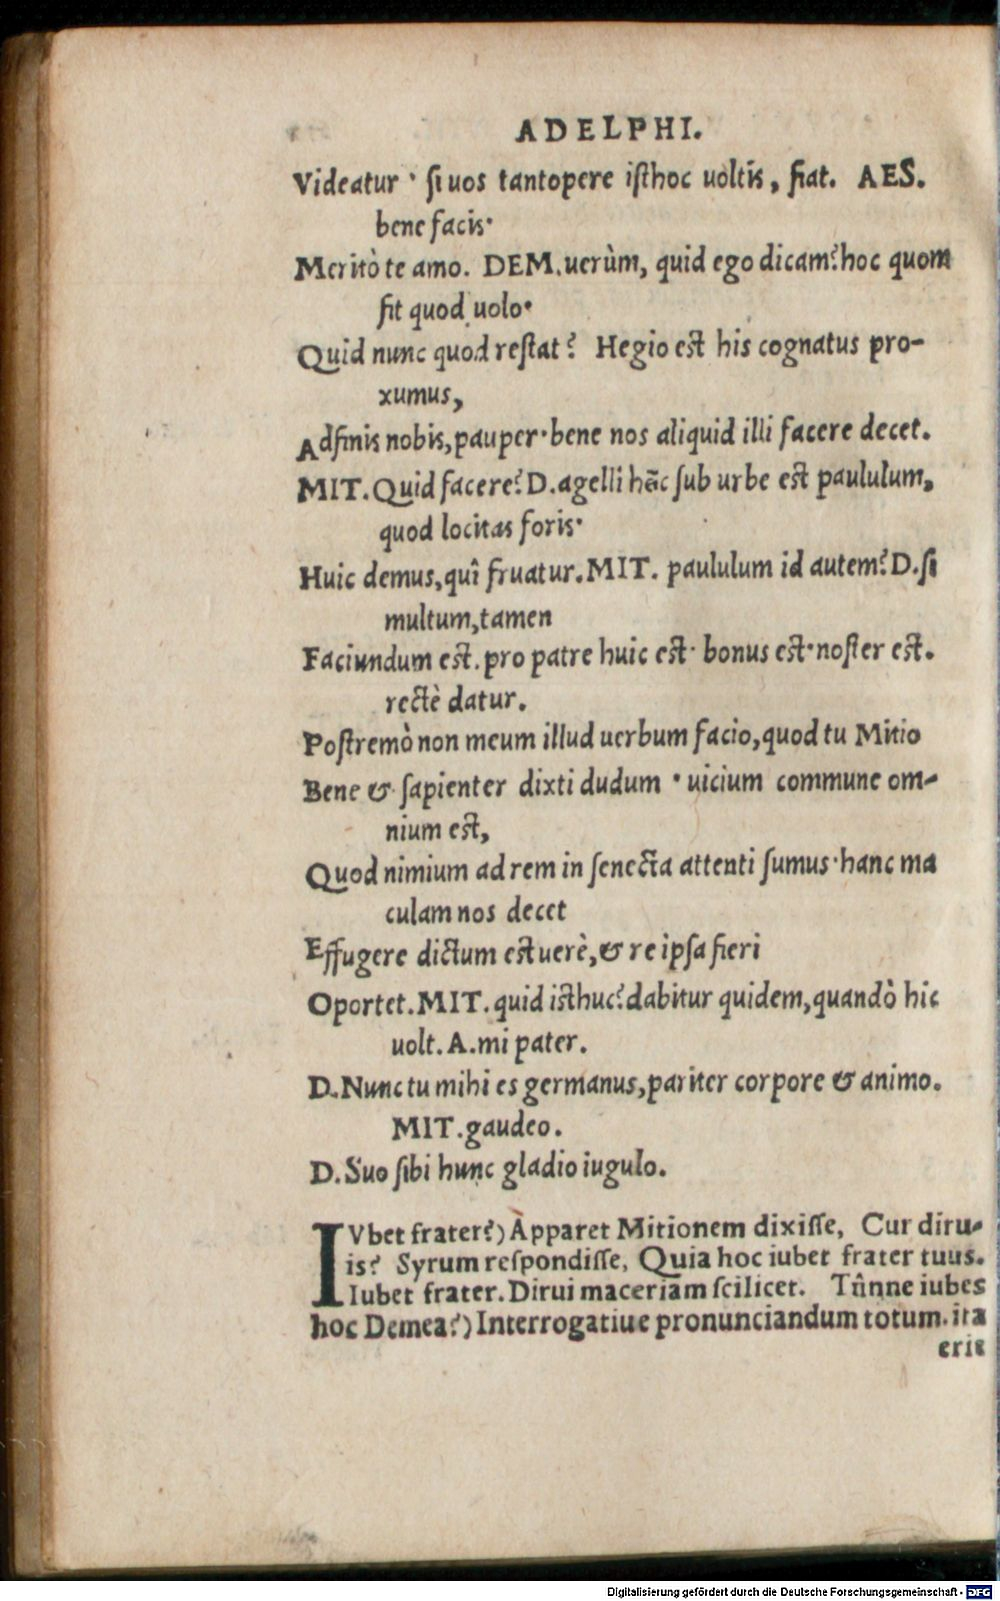 ADELPHI.
Videatur · si uos tantopere isthoc uoltis, fiat. AES.
bene facis·
Meritò te amo. DEM. uerùm, quid ego dicam? hoc quom
fit quod uolo·
Quid nunc quod restat? Hegio est his cognatus pro-
xumus,
Adfinis nobis, pauper· bene nos aliquid illi facere decet.
MIT. Quid facere? D. agelli hāc sub urbe est paululum,
quod locitas foris·
Huic demus, quî fruatur. MIT. paululum id autem? D. si
multum, tamen
Faciundum est. pro patre huic est· bonus est· noster est.
rectè datur.
Postremò non meum illud uerbum facio, quod tu Mitio
Bene & sapienter dixti dudum · uicium commune om-
nium est,
Quod nimium ad rem in senecta attenti sumus· hanc ma
culam nos decet
Effugere dictum est uerè, & re ipsa fieri
Oportet. MIT. quid isthuc? dabitur quidem, quandò hic
uolt. A. mi pater.
D. Nunc tu mihi es germanus, pariter corpore & animo.
MIT. gaudeo.
D. Suo sibi hunc gladio iugulo.
IVbet frater?) Apparet Mitionem dixisse, Cur diru-
is? Syrum respondisse, Quia hoc iubet frater tuus.
Iubet frater. Dirui maceriam scilicet. Tûnne iubes
hoc Demea?) Interrogatiue pronunciandum totum. ita
erit
Digitalisierung gefördert durch die Deutsche Forschungsgemeinschaft - DFG